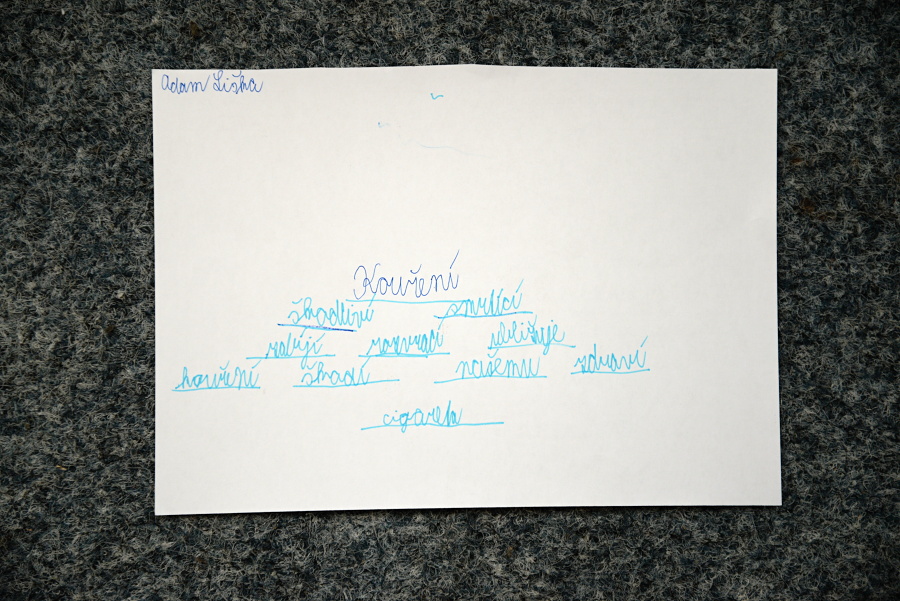 Adam Liška
Kouření
škodliví smrtící
zabíjí rozvrací ubližuje
kouření škodí našemu zdraví
cigareta